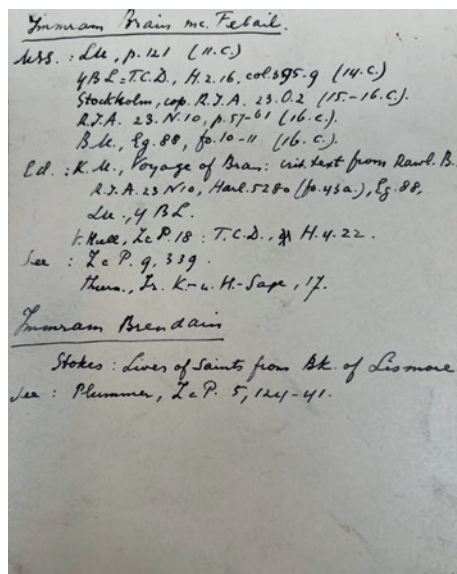 Immram Brain mc. Febail.
MSS. : LU, p. 121 (11.c.)
YBL = T.C.D., H.2.16, col. 395-9 (14.c.)
Stockholm, cop. R.I.A. 23.O.2 (15.-16.c.).
R.I.A. 23.N.10, p. 57-61 (16.c.).
B.M., Eg. 88, fo. 10-11 (16.c.).
Ed. : K.M., Voyage of Bran: crit. text from Rawl. B.
R.I.A. 23 N 10, Harl. 5280 (fo. 43a.), Eg. 88,
LU., YBL.
V. Hull, ZcP. 18 : T.C.D., H.4.22.
See : ZcP. 9, 339.
Thurn., Ir. K.-u. H.-Sage, 17.
Immram Brendain
Stokes : Lives of Saints from Bk. of Lismore
See : Plummer, ZcP. 5, 124-41.